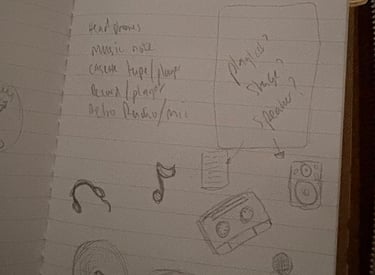 Headphones
Music note
casette tape/player
Record/player
Retro Radio/mic
playlist?
Speaker?